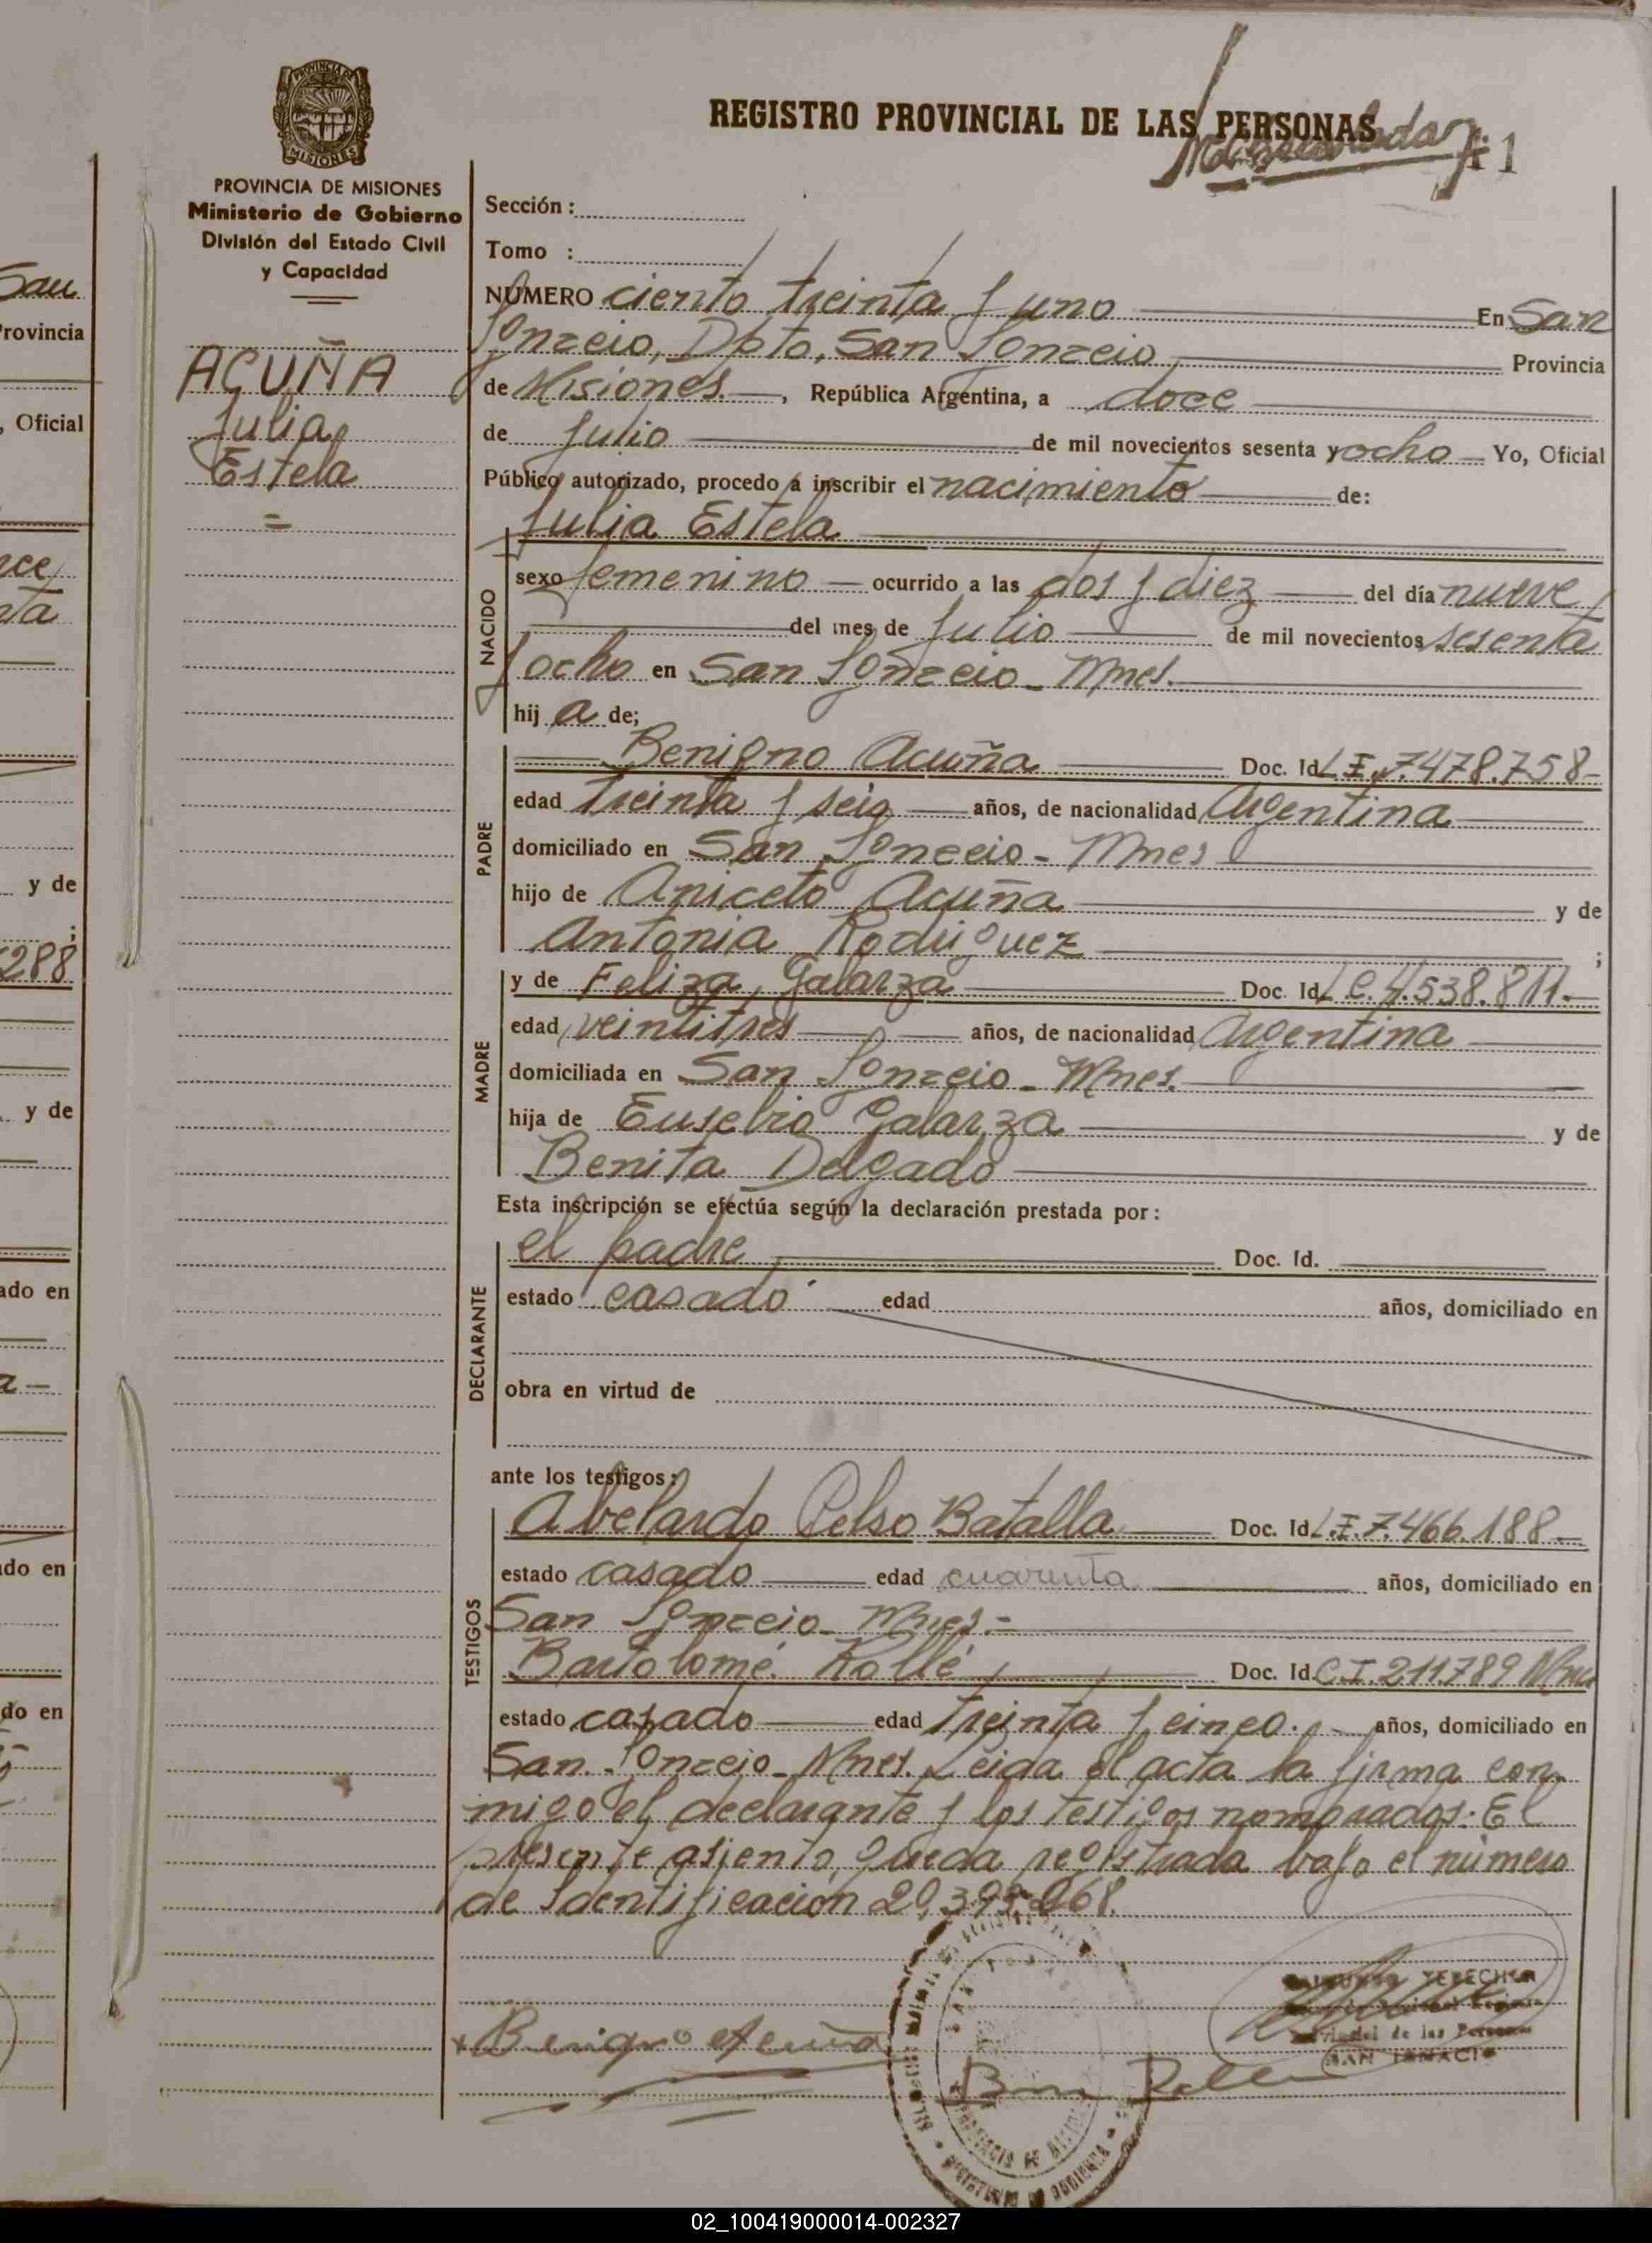 REGISTRO PROVINCIAL DE LAS PERSONAS
41
PROVINCIA DE MISIONES
MISIONES
PROVINCIA DE MISIONES
Ministerio de Gobierno
División del Estado Civil
y Capacidad
ACUÑA
Julia
Estela
=
Sección :
Tomo :
NÚMERO ciento treinta y uno En San
Ignacio, Dpto, San Ignacio Provincia
de Misiones. , República Argentina, a doce
de Julio de mil novecientos sesenta y ocho Yo, Oficial
Público autorizado, procedo a inscribir el nacimiento de:
Julia Estela
NACIDO
sexo femenino ocurrido a las dos y diez del día nueve
del mes de Julio de mil novecientos sesenta
y ocho en San Ignacio - Mnes.
hij a de;
PADRE
Benigno Acuña Doc. Id. L.E. 7.478.758-
edad treinta y seis años, de nacionalidad Argentina
domiciliado en San Ignacio - Mnes
hijo de Aniceto Acuña y de
Antonia Rodriguez ;
MADRE
y de Feliza Galarza Doc. Id. L.C. 4.538.811.-
edad veintitres años, de nacionalidad Argentina
domiciliada en San Ignacio - Mnes.
hija de Eusebio Galarza y de
Benita Delgado
Esta inscripción se efectúa según la declaración prestada por:
DECLARANTE
el padre Doc. Id.
estado casado edad años, domiciliado en
obra en virtud de
ante los testigos:
TESTIGOS
Abelardo Celso Batalla Doc. Id. L.E. 7.466.188-
estado casado edad cuarenta años, domiciliado en
San Ignacio - Mnes.-
Bartolomé Rollé Doc. Id. C.I. 211.789 Mnes
estado casado edad treinta y cinco.- años, domiciliado en
San Ignacio - Mnes. Leida el acta la firma con-
migo el declarante y los testigos nombrados. El
presente asiento queda registrada bajo el número
de Identificación 20,393.268.
Benigno Acuña
SAN IGNACIO
San
Provincia
, Oficial
y de
;
288
y de
ado en
do en
do en
02_100419000014-002327